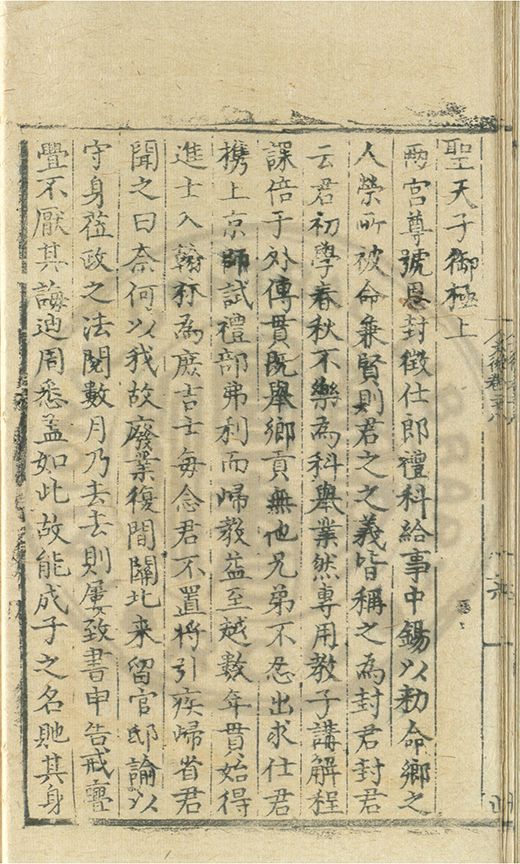 聖天子御極上
兩宮尊號恩封徵仕郎禮科給事中錫以勅命鄉之
人榮所被命兼賢則君之之義皆稱之為封君封君
云君初學春秋不樂為科舉業然專用教子講解程
課倍于外傳貫既舉鄉貢無他兄弟不忍出求仕君
携上京師試禮部弗利而歸教益至越數年貫始得
進士入翰林為庶吉士每念君不置將引疾歸省君
聞之曰奈何以我故廢業復間關北来留官邸論以
守身蒞政之法閱數月乃去去則屢致書申告戒亹
亹不厭其誨迪周悉盖如此故能成子之名貤其身